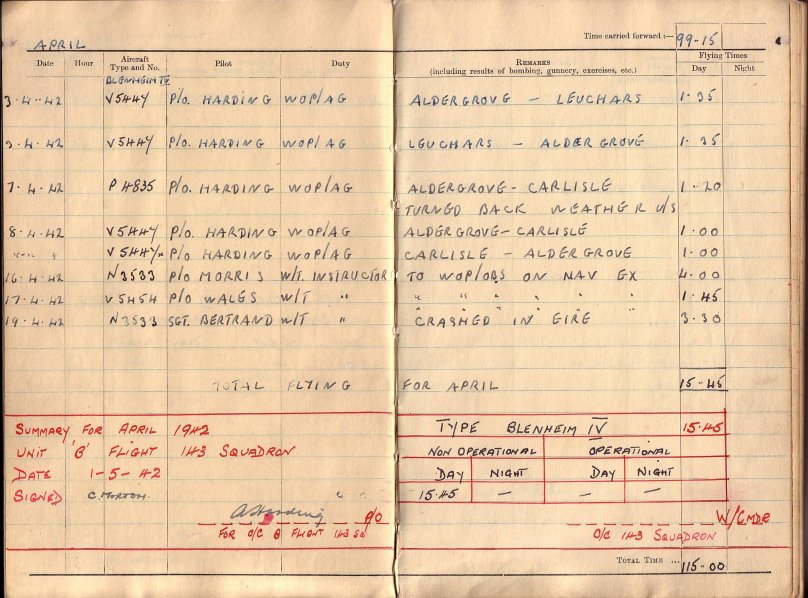 APRIL
Time carried forward :— 99-15
Date Hour Aircraft Type and No. Pilot Duty REMARKS (including results of bombing, gunnery, exercises, etc.) Flying Times Day Night
BLENHEIM IV
3.4.42 V5447 P/O. HARDING WOP/AG ALDERGROVE — LEUCHARS 1.35
3.4.42 V5447 P/O. HARDING WOP/AG LEUCHARS — ALDERGROVE 1.35
7.4.42 P4835 P/O. HARDING WOP/AG ALDERGROVE - CARLISLE 1.20
TURNED BACK WEATHER U/S
8.4.42 V5447 P/O. HARDING WOP/AG ALDERGROVE - CARLISLE 1.00
" " " V5447 P/O HARDING WOP/AG CARLISLE - ALDERGROVE 1.00
16.4.42 N3533 P/O MORRIS W/T. INSTRUCTOR TO WOP/OBS ON NAV EX 4.00
17.4.42 V5454 P/O WALES W/T " " " " " " 1.45
19.4.42 N3533 SGT. BERTRAND W/T " CRASHED IN EIRE 3.30
TOTAL FLYING FOR APRIL 15.45
SUMMARY FOR APRIL 1942 TYPE BLENHEIM IV 15.45
UNIT 'B' FLIGHT 143 SQUADRON NON OPERATIONAL OPERATIONAL
DATE 1-5-42 DAY NIGHT DAY NIGHT
SIGNED C. MORTON. 15.45 — — —
A Harding P/O W/CMDR
FOR O/C B FLIGHT 143 SQ O/C 143 SQUADRON
TOTAL TIME ... 115.00